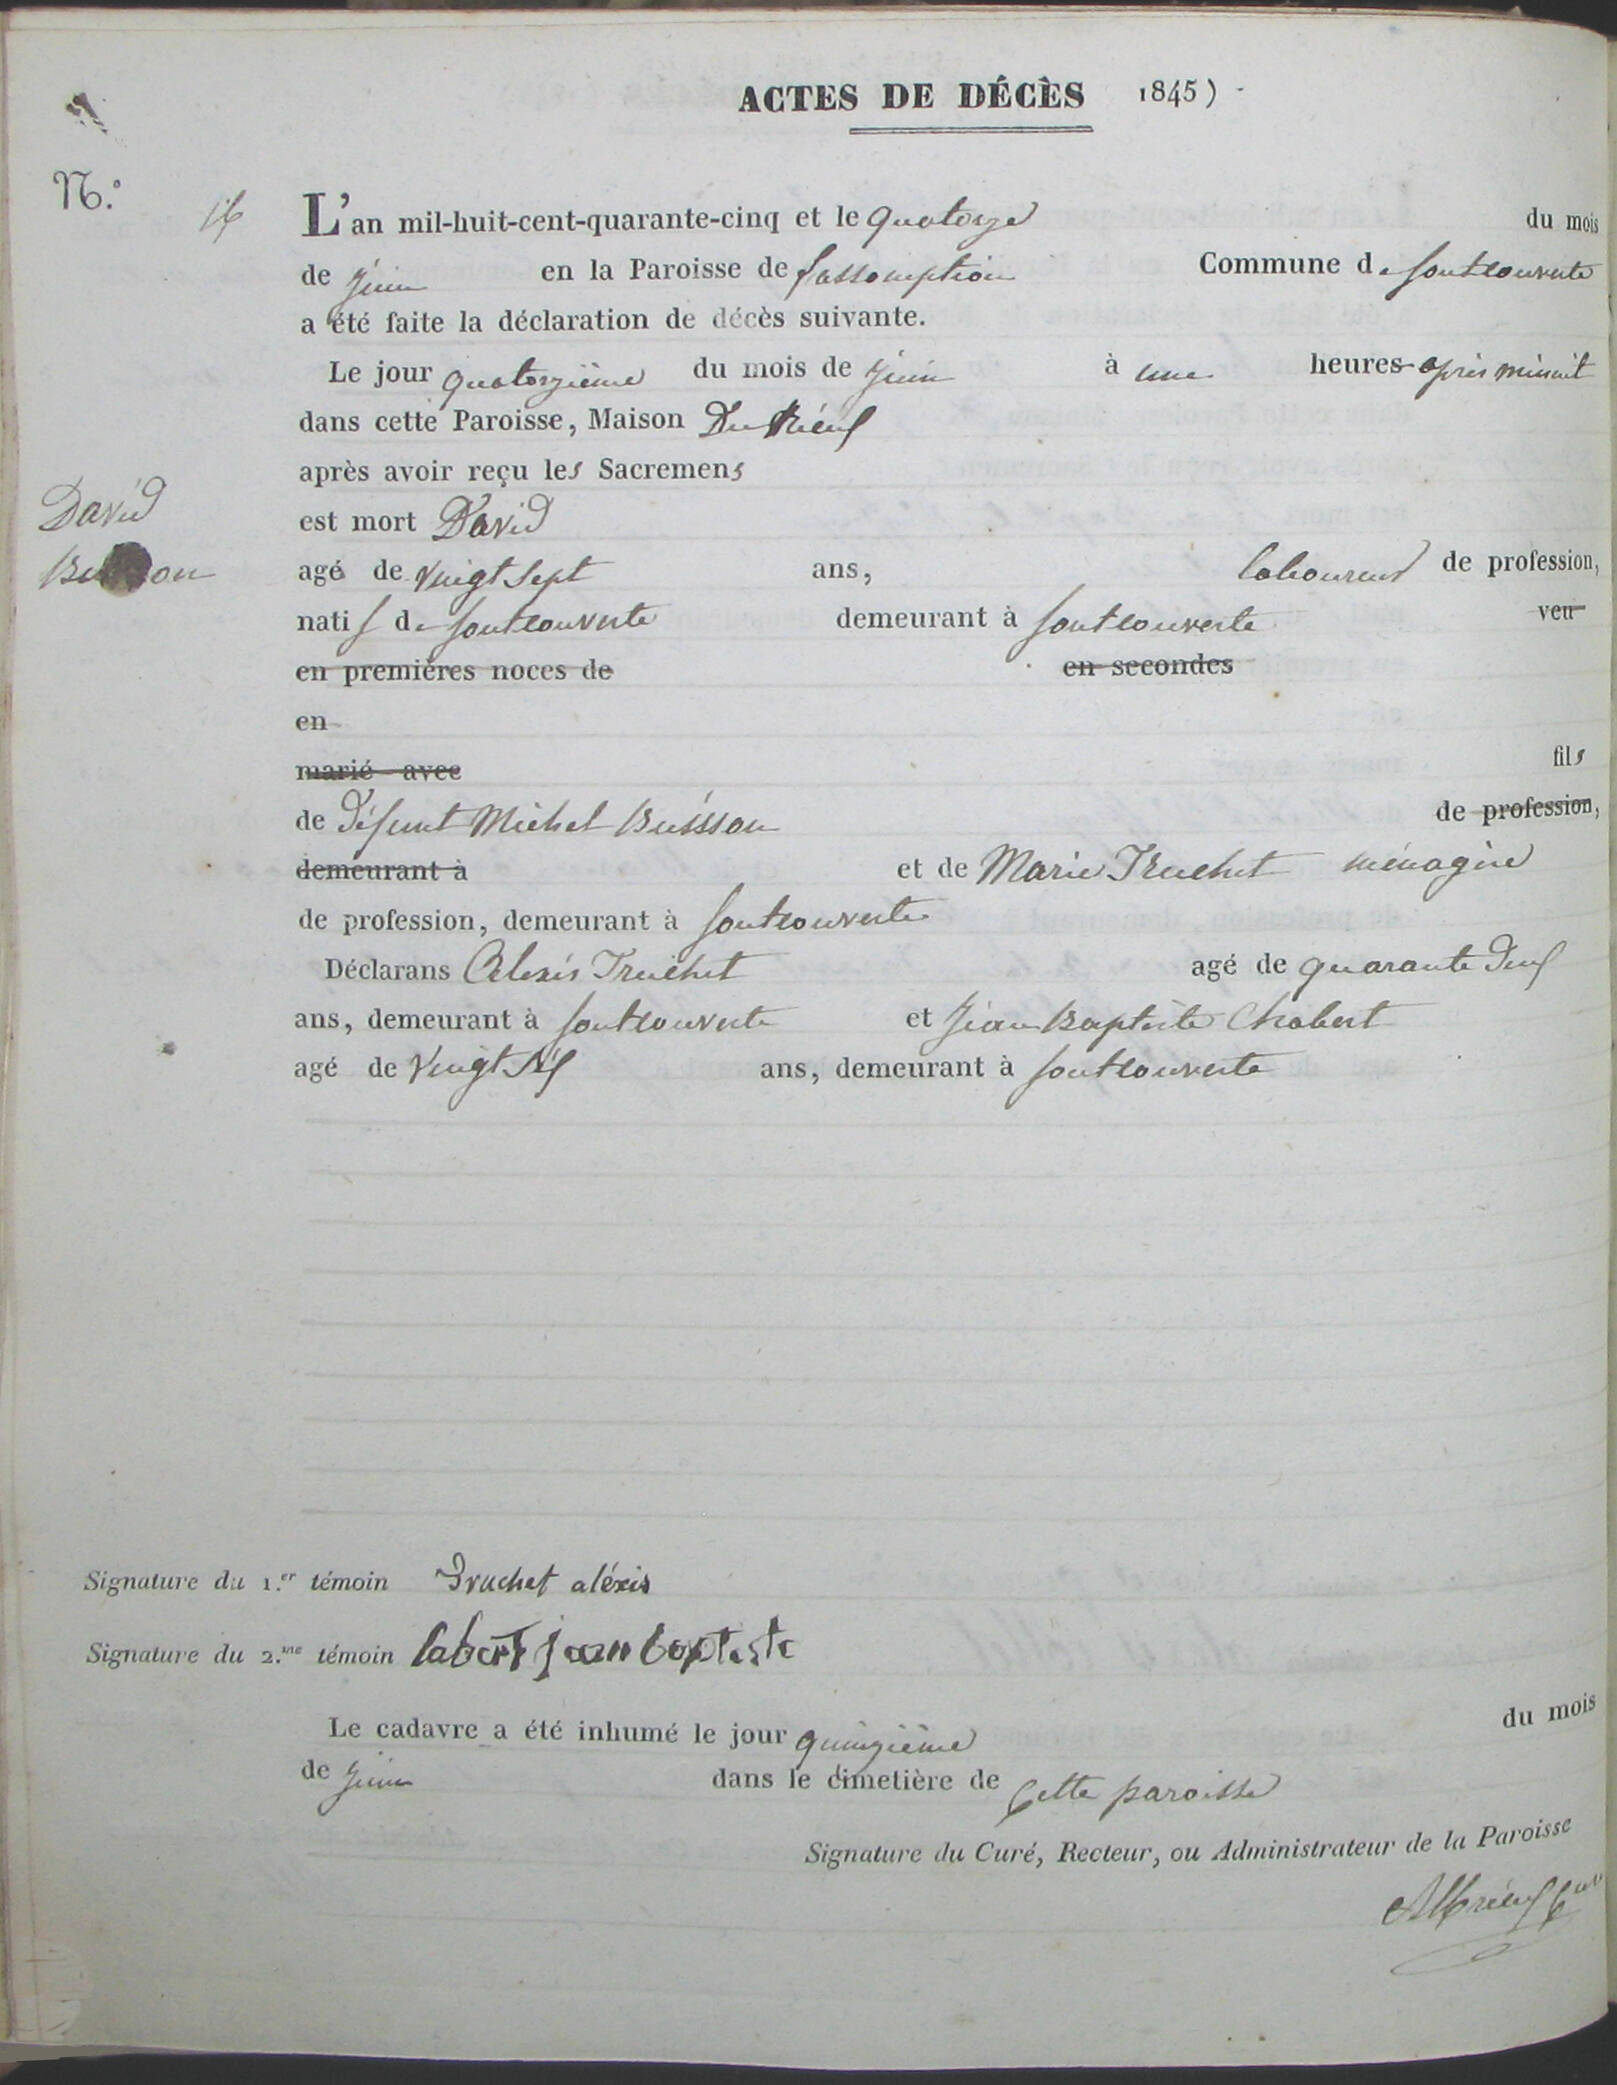 ACTES DE DÉCÈS 1845)
N.° 16
L'an mil-huit-cent-quarante-cinq et le quatorze du mois
de juin en la Paroisse de l'assomption Commune de fontcouverte
a été faite la déclaration de décès suivante.
Le jour quatorzième du mois de juin à une heures après minuit
dans cette Paroisse, Maison Du
après avoir reçu les Sacremens
David
est mort David
agé de vingt sept ans, laboureur de profession,
natif de fontcouverte demeurant à fontcouverte veu
en premières noces de en secondes
en
marié avec fils
de défunt Michel Buisson de profession,
demeurant à et de Marie Truchet ménagère
de profession, demeurant à fontcouverte
Déclarans Alexis Truchet agé de quarante deux
ans, demeurant à fontcouverte et Jean Baptiste Chabert
agé de vingt six ans, demeurant à fontcouverte
Signature du 1.er témoin Truchet aléxis
Signature du 2.me témoin jean baptiste
Le cadavre a été inhumé le jour quinzième du mois
de juin dans le cimetière de cette paroisse
Signature du Curé, Recteur, ou Administrateur de la Paroisse